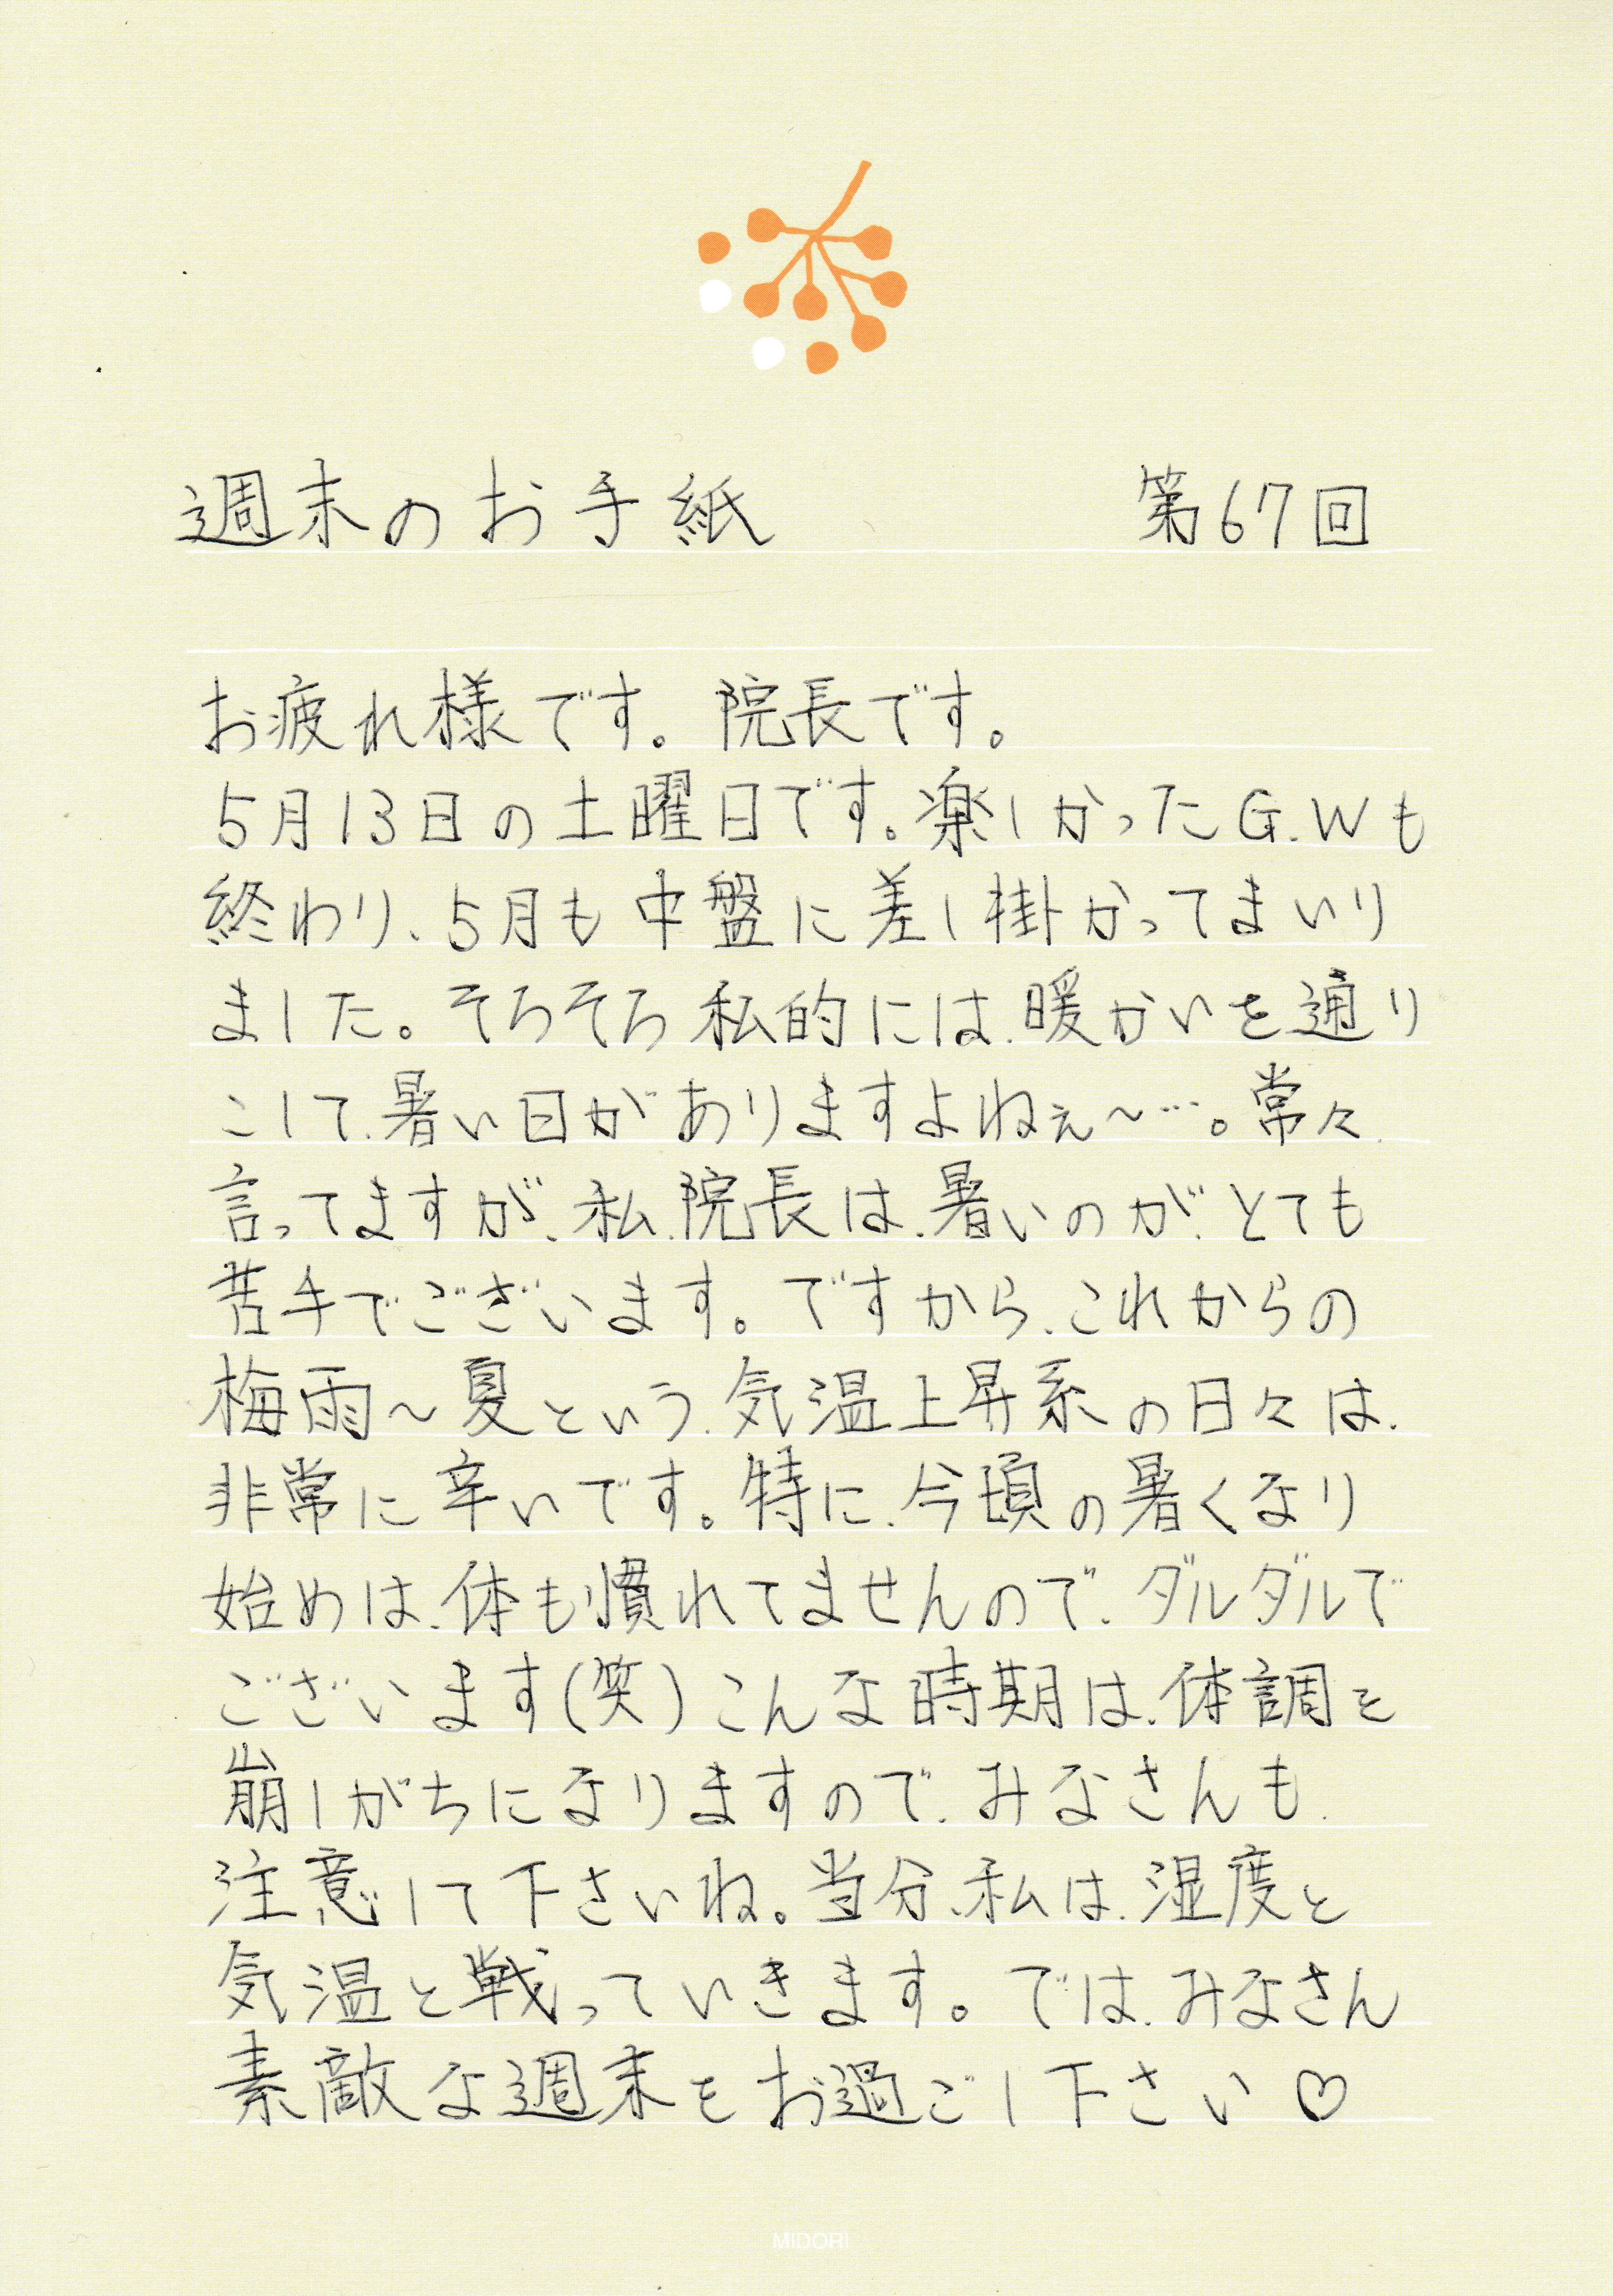 週末のお手紙 第67回
お疲れ様です。院長です。
5月13日の土曜日です。楽しかったG.Wも
終わり、5月も中盤に差し掛かってまいり
ました。そろそろ私的には、暖かいを通り
こして、暑い日がありますよねぇ〜…。常々、
言ってますが、私、院長は、暑いのが、とても
苦手でございます。ですから、これからの
梅雨〜夏という、気温上昇系の日々は、
非常に辛いです。特に、今頃の暑くなり
始めは、体も慣れてませんので、ダルダルで
ございます(笑)こんな時期は、体調を
崩しがちになりますので、みなさんも、
注意して下さいね。当分、私は、湿度と
気温と戦っていきます。では、みなさん
素敵な週末をお過ごし下さい♡
MIDORI